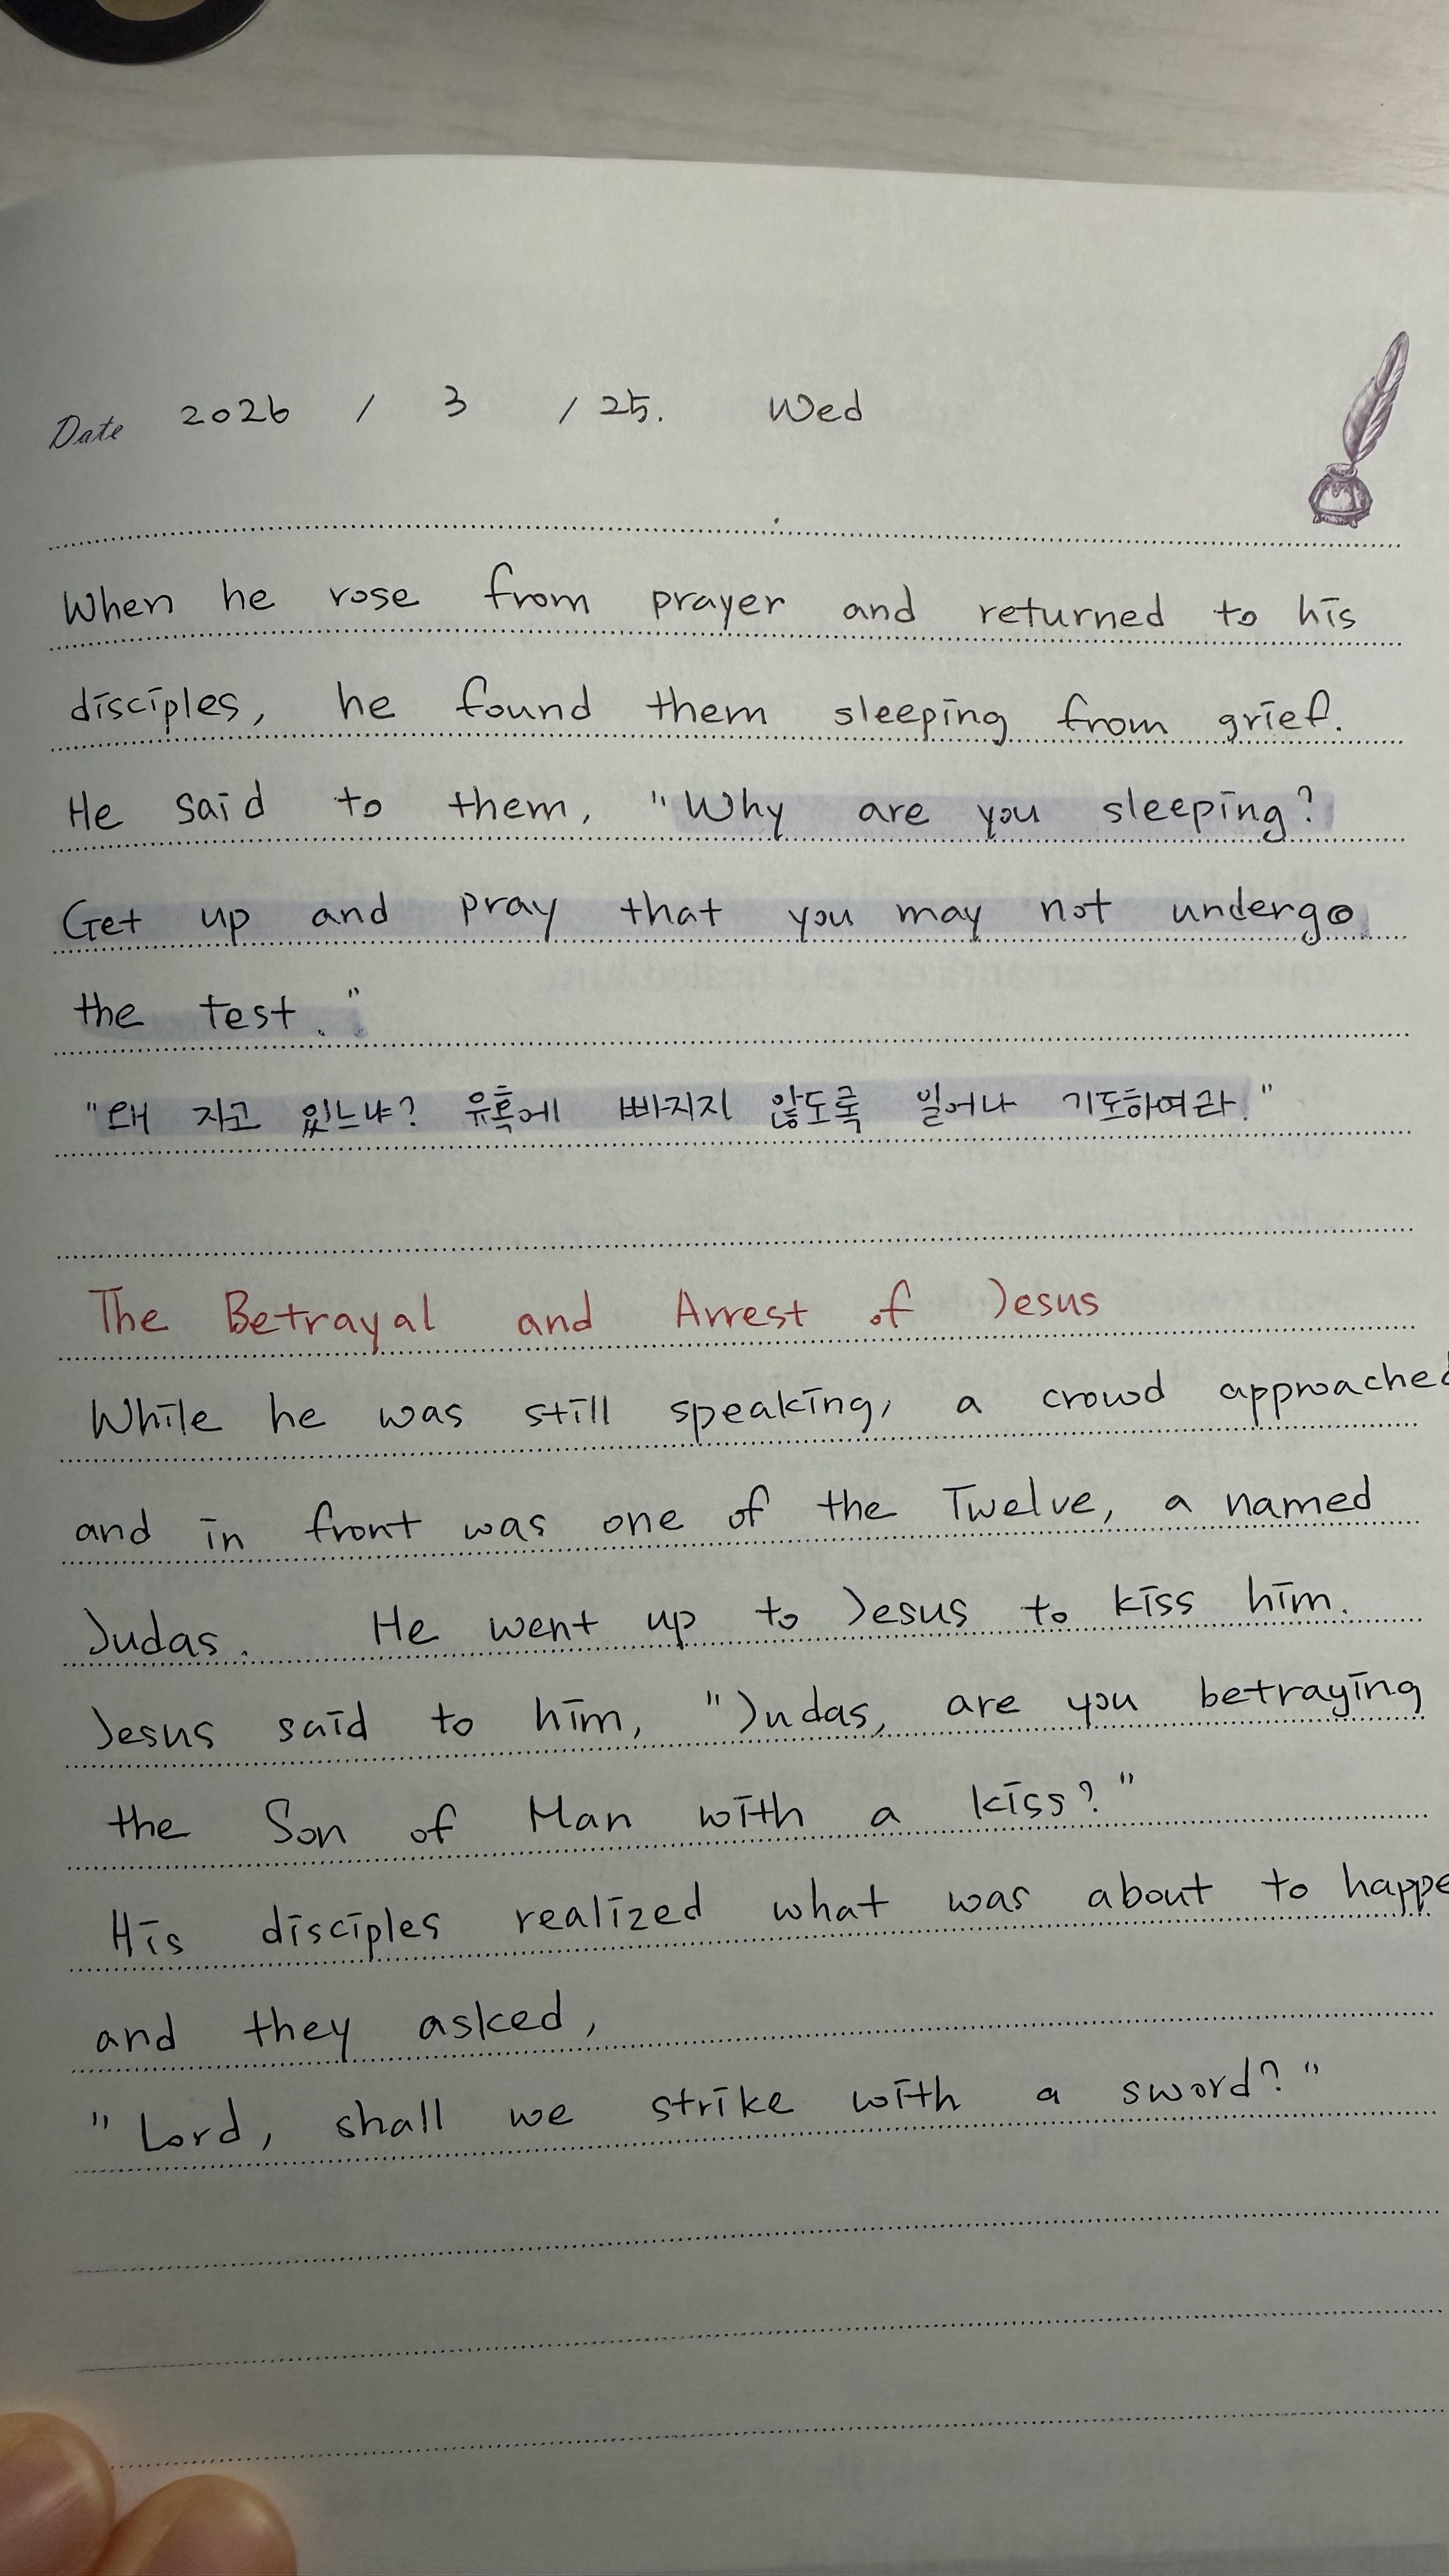 Date 2026 / 3 / 25. Wed
When he rose from prayer and returned to his
disciples, he found them sleeping from grief.
He said to them, "Why are you sleeping?
Get up and pray that you may not undergo
the test."
"왜 자고 있느냐? 유혹에 빠지지 않도록 일어나 기도하여라."
The Betrayal and Arrest of Jesus
While he was still speaking, a crowd approached
and in front was one of the Twelve, a named
Judas. He went up to Jesus to kiss him.
Jesus said to him, "Judas, are you betraying
the Son of Man with a kiss?"
His disciples realized what was about to happe
and they asked,
"Lord, shall we strike with a sword?"